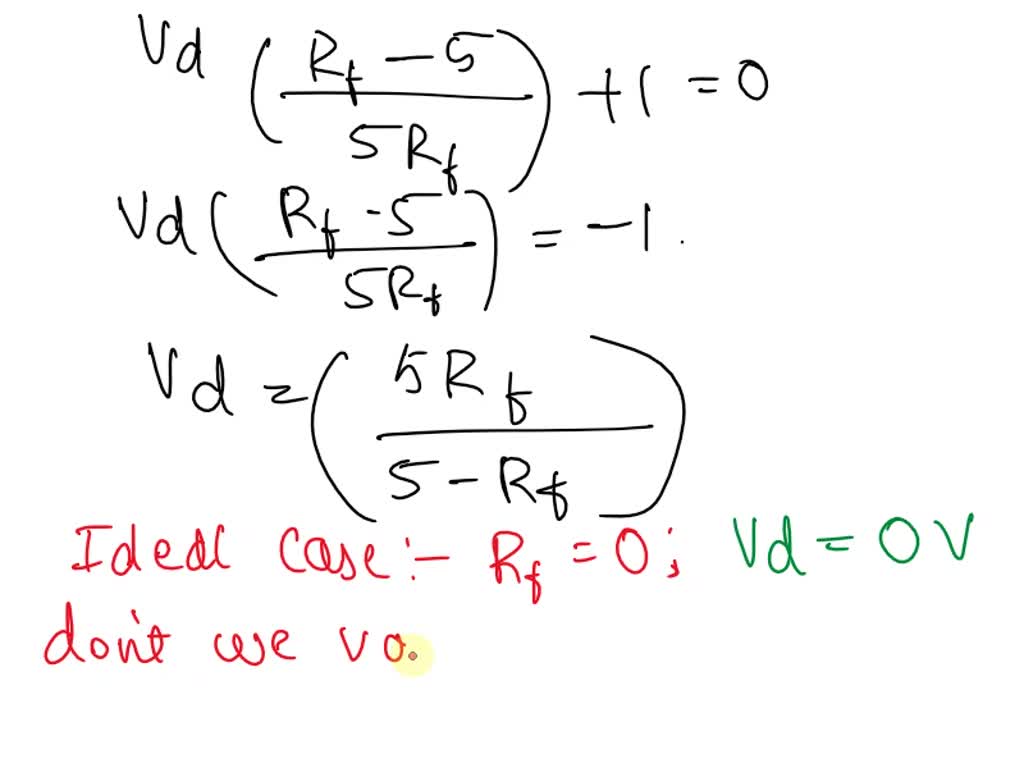 Vd ( (Rf - 5) / 5Rf ) + 1 = 0
Vd ( (Rf - 5) / 5Rf ) = -1.
Vd = ( 5Rf / (5 - Rf) )
Ideal case:- Rf = 0; Vd = 0 V
don't we va